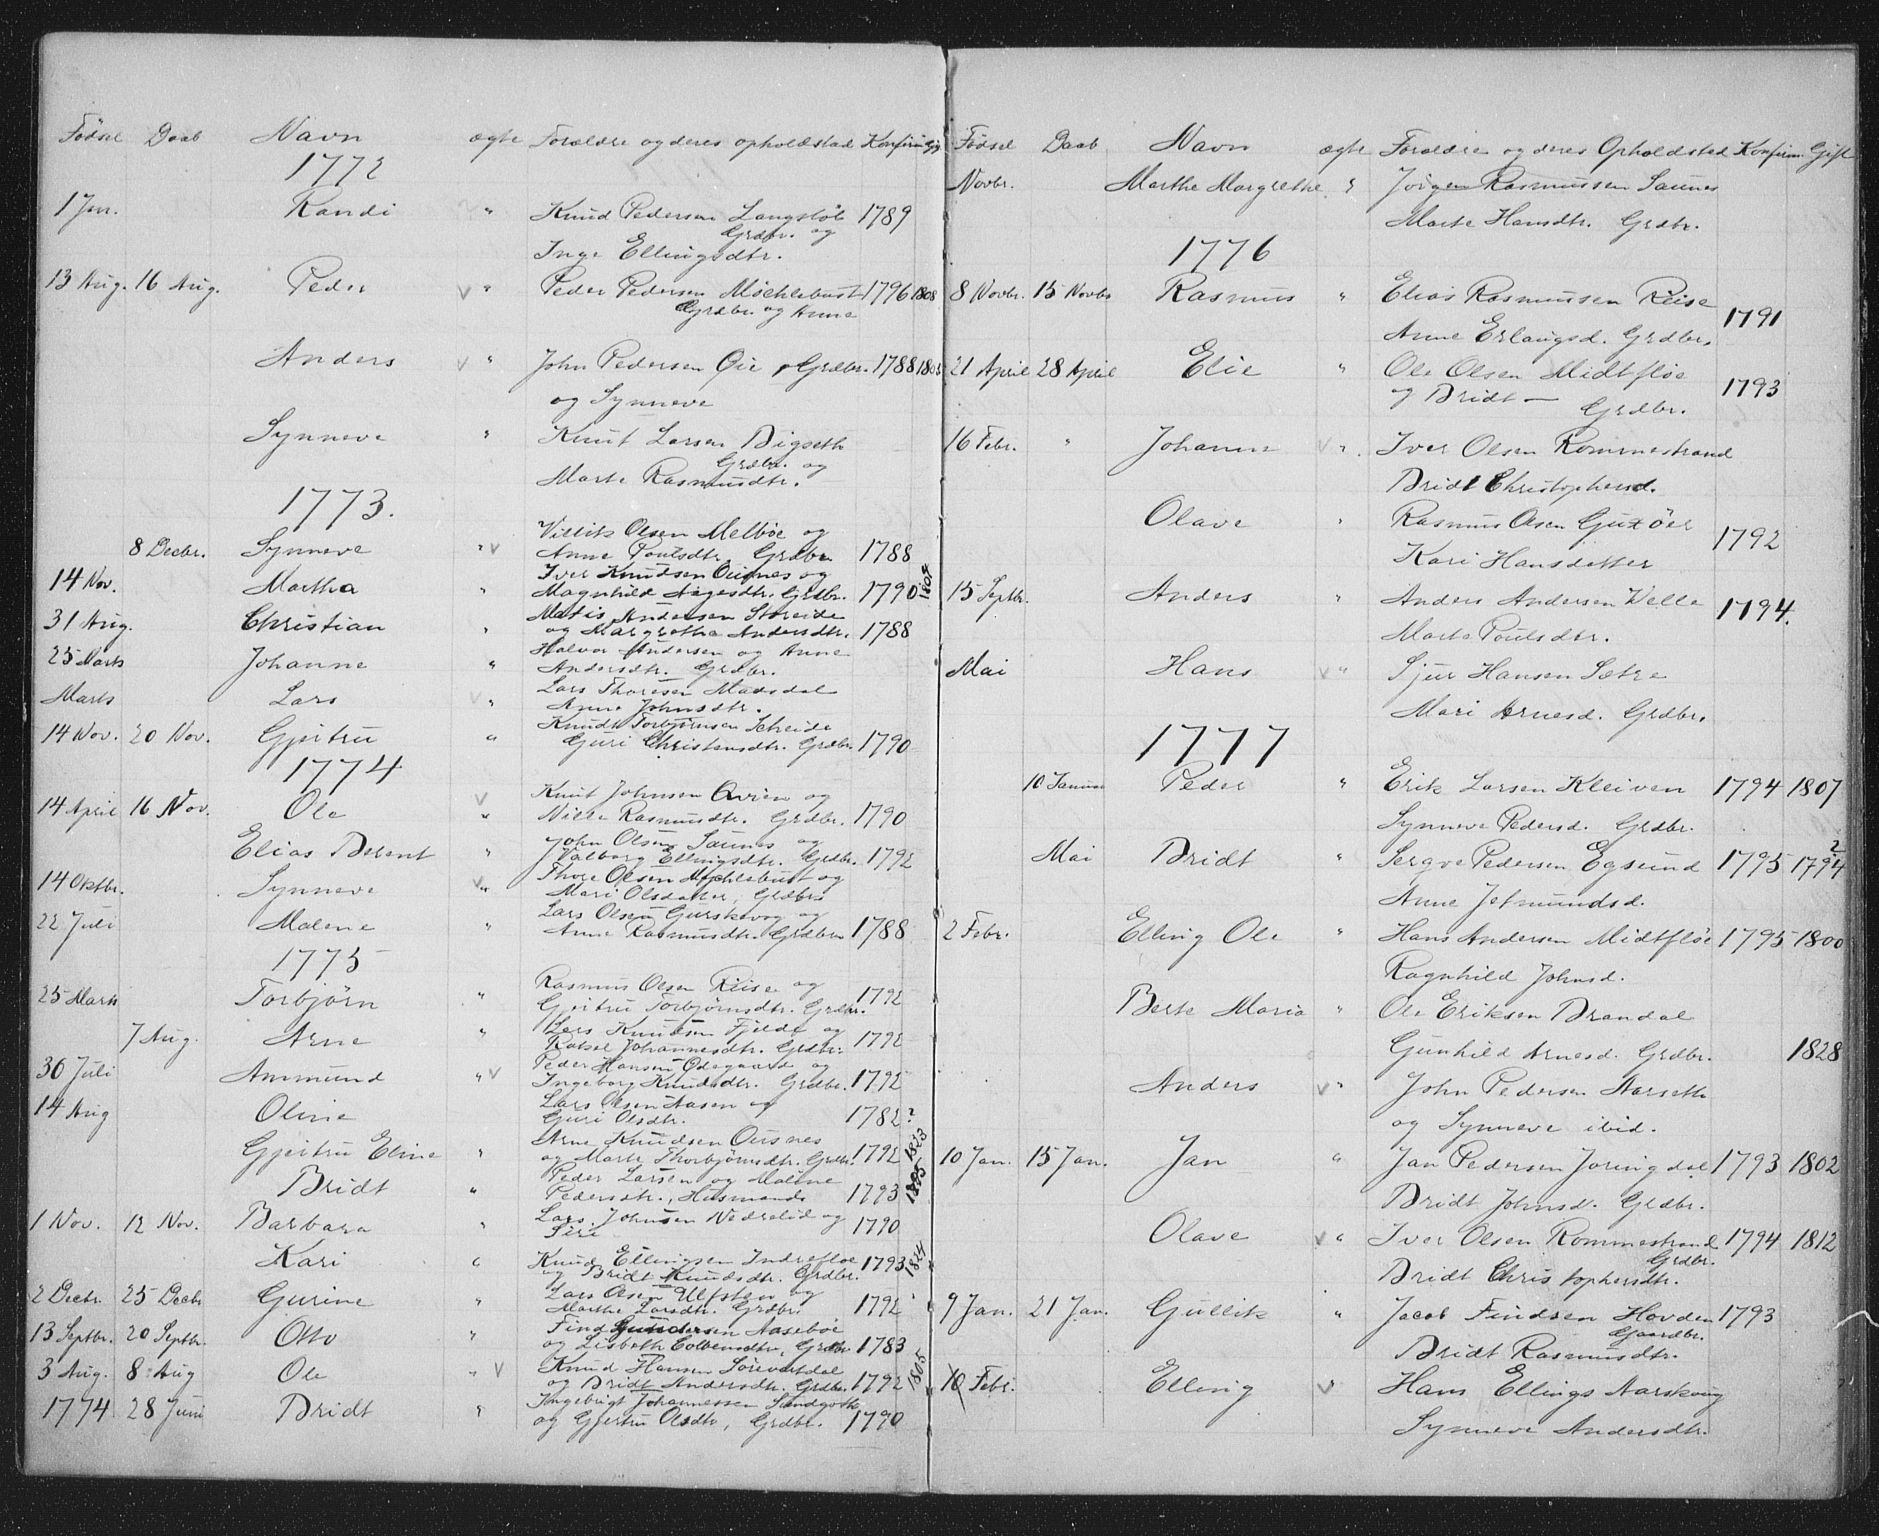 Fødsel Daab Navn ægte Forældre og deres opholdsstad Konfirm Gif
1772
1 Jan. Randi " Knud Pedersen Langstöl 1789
Grdbr. og
Inge Ellingsdtr.
13 Aug. 16 Aug. Peder v " Peder Pedersen Möchlebust 1796 1808
Grdbr. og Anne
Anders v " John Pedersen Öie Grdbr. 1788
og Synneve
Synneve " Knut Larsen Digseth
Grdbr. og
Marte Rasmusdtr.
1773.
Villik Olsen Melböe og
8 Decbr. Synneve " v Anne Poulsdtr. Grdbr. 1788
Iver Knudsen Ousnes og
14 Nov. Martha " Magnhild Aagesdtr. Grdbr. 1790 1807
Matis Andersen Storeide
31 Aug. Christian " og Margrethe Andersdtr. 1788
Halvor Andersen og Anne
25 Marts Johanne " Andersdtr. Grdbr.
Lars Thoresen Maasdal
Marts Lars v " Anne Johnsdtr.
Knudt Torbjørnsen
14 Nov. 20 Nov. Gjertru " Guri Christensdtr. Grdbr. 1790
1774
Knut Johnsen og
14 April 16 Nov. Ole v " Nille Rasmusdtr. Grdbr. 1790
John Olsen Saunes og
Elias Berent " Valborg Ellingsdtr. Grdbr. 1792
Thore Olsen Möchlebust og
14 Oktbr. Synneve v " Mari Olsdatter, Grdbr.
Lars Olsen Gurskevog og
22 Juli Malene " Anne Rasmusdtr. Grdbr. 1788
1775
Rasmus Olsen Reise og
25 Marts Torbjörn " Gjertru Torbjörnsdtr. Grdbr. 1792
Lars Knudsen Fjelde og
7 Aug. Arne " Rakel Johannesdtr. Grdbr. 1792
Peder Hansen Odegaard og
30 Juli Ammund " v Ingeborg Knudsdtr. Grdbr. 1792
Lars Olsen Aasen og
14 Aug Oline Guri Olsdtr. 1782?
Arne Knudsen Ousnes
Gjertru Eline " og Marte Thorbjörnsdtr. Grdbr. 1792 1823
Peder Larsen og Malene
Bridt " Pedersdtr., Husmands 1793
Lars Johnsen Nedrelid og
1 Nov. 12 Nov. Barbara " Siri 1790
Knud Ellingsen Indreflöe
Kari " og Bridt Knudsdtr. Grdbr. 1793 1824
Lars Olsen Ulfsten og
2 Decbr. 25 Decbr Gurine " Marthe Larsdtr. Grdbr. 1792
Find Gundersen Aaseböe
13 Septbr. 20 Septbr. Otto " og Lisbeth Colbensdtr, Grdbr 1783
Knud Hansen Sörevartdal
3 Aug. 8 Aug Ole " v og Bridt Andersdtr. Grdbr. 1792 1805
Ingebrigt Johannessen Sandgothe
1774 28 Juni Bridt " og Gjertru Olsdtr, Grdbr. 1790
Fødsel Daab Navn ægte Forældre og deres Opholdsted Konfirm Gift
Novbr. Marthe Margrethe " Jörgen Rasmussen Saunes
Marte Hansdtr. Grdbr.
1776
8 Novbr. 15 Novbr Rasmus " Elias Rasmussen Reise
Anne Erlangsd. Grdbr. 1791
21 April 28 April Elie " Ole Olsen Midtflöe
og Bridt — Grdbr. 1793
16 Febr. " Johanne v " Iver Olsen Rommestrand
Bridt Christophersd.
Olave " Rasmus Olsen
Kari Hansdatter 1792
15 Septbr. Anders " Anders Andersen Welle
Marte Poulsdtr. 1794.
Mai Hans v " Sjur Hansen Sætre
Mari Arnesd. Grdbr.
1777
10 Januar Peder " Erik Larsen Kleiven 1794 1807
Synneve Pedersd. Grdbr.
Mai Bridt " Sergve Pedersen Egsund 1795 1794 2
Anne Jetmundsd.
2 Febr. Elling Ole " Hans Andersen Midtflöe 1795 1800
Ragnhild Johnsd.
Berte Maria " Ole Eriksen Brandal
Gunhild Arnesd. Grdbr. 1828
Anders v " John Pedersen Aarseth
og Synneve ibid.
10 Jan. 15 Jan. Jan " Jan Pedersen Joringdal 1793 1802
Bridt Johnsd. Grdbr.
Olave v " Iver Olsen Rommestrand 1794 1812
Grdbr.
Bridt Christophersdtr.
9 Jan. 21 Jan. Gullik " Jacob Findsen Hovden 1793
Gaardbr.
Bridt Rasmusdtr.
10 Febr. Elling v Hans Ellings Aarskoug
Synneve Andersdtr.